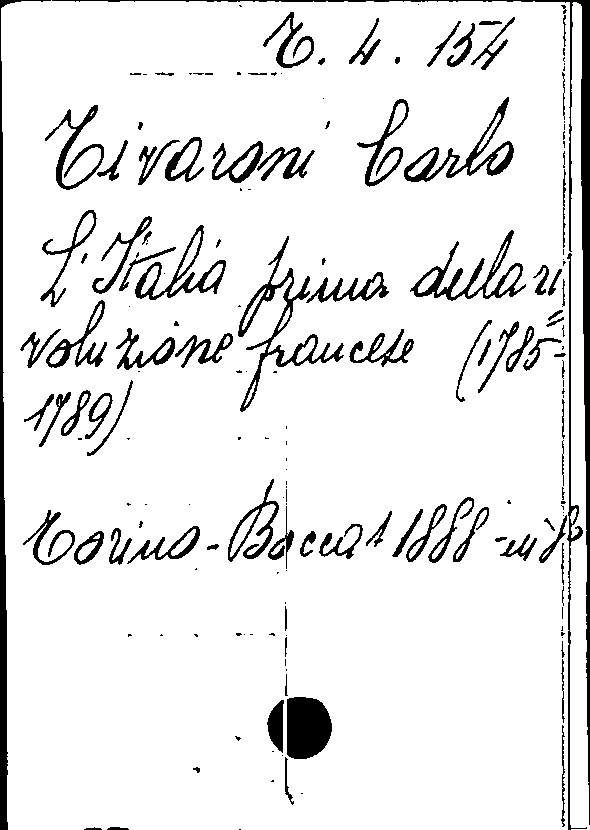 T. 4. 154
Tivaroni Carlo
L'Italia prima della ri=
voluzione francese (1785-
1789)
Torino - Bocca 1888 - in 8°